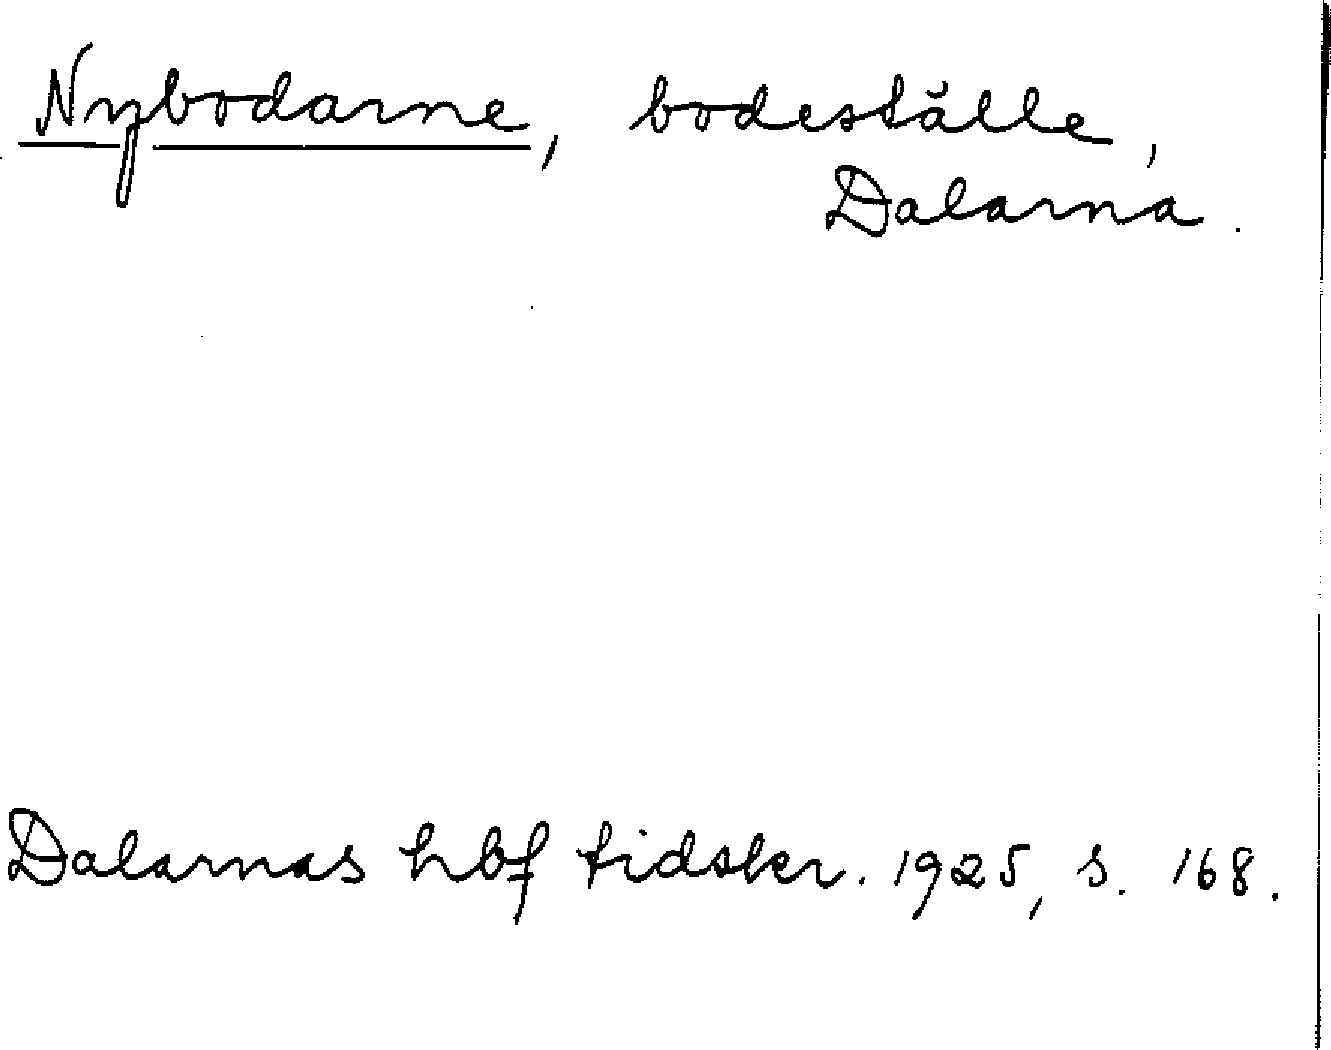 Nybodarne, bodeställe,
Dalarna.
Dalarnas hbf tidskr. 1925, s. 168.